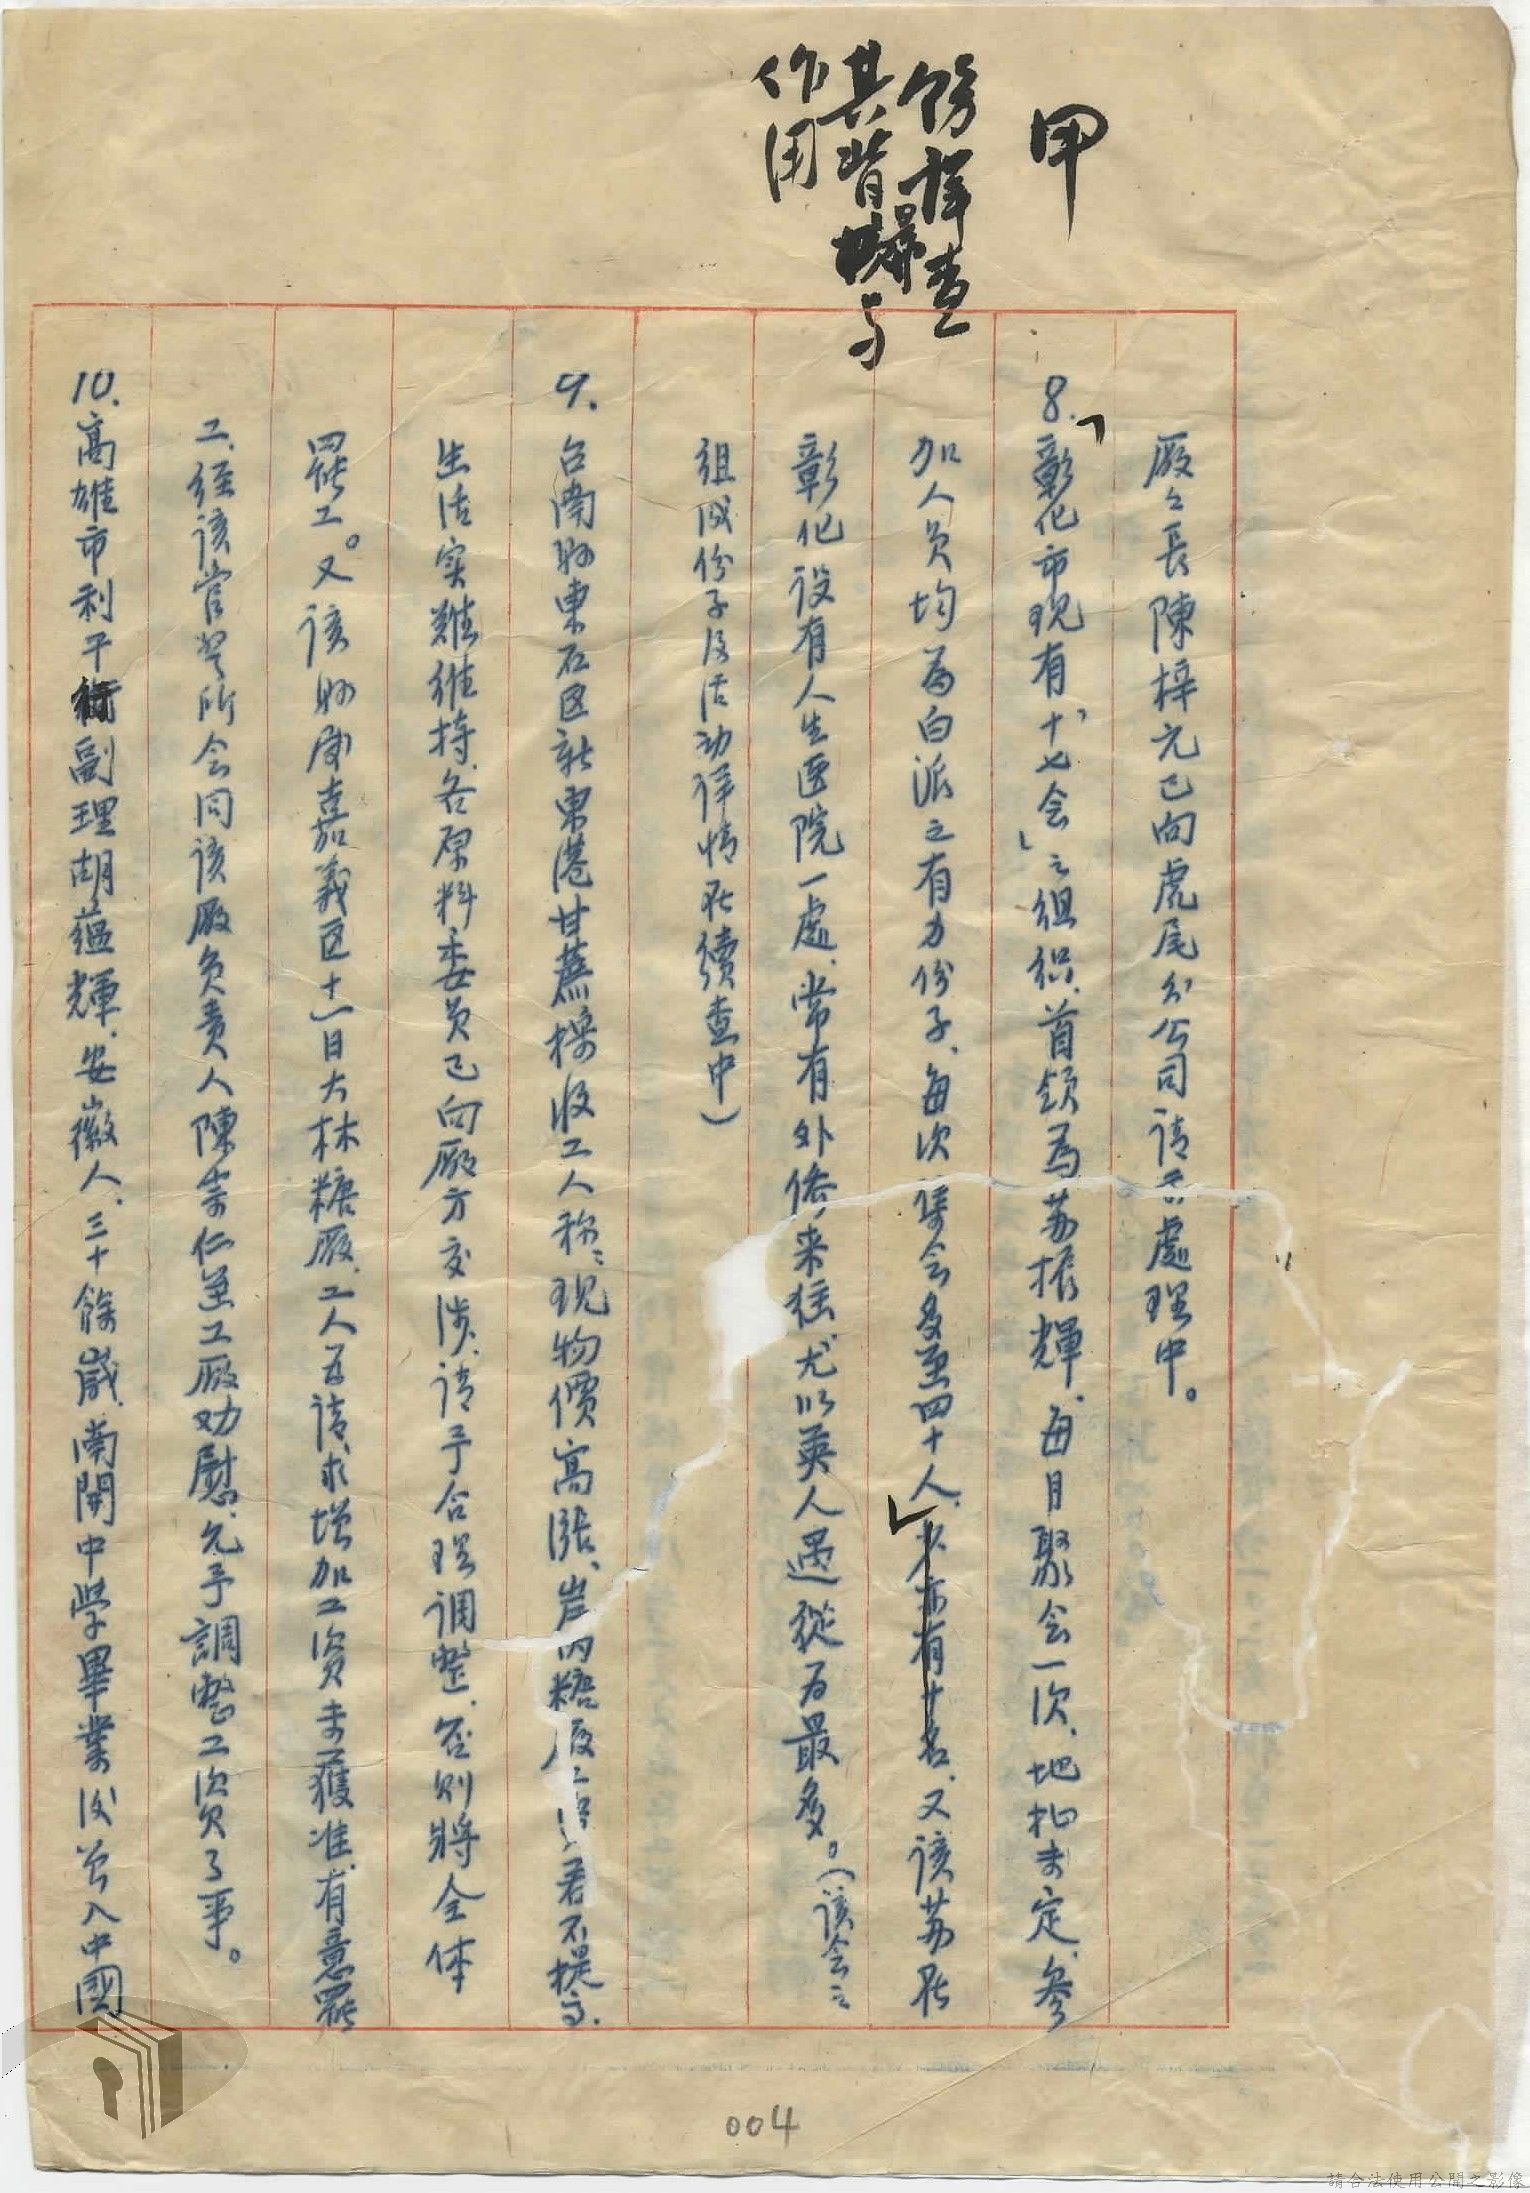 甲
飭詳查
其背景与
作用
廠之長陳梓元已向虎尾分公司請示處理中。
8.「彰化市現有「十七会」之组织、首领為荔振輝、每月聚会一次、地扯未定、參
加人员均為白派之有力份子、每次集会多至四十人、」少亦有廿名、又该荔於
彰化设有人生医院一處、常有外僑来往尤以英人遇從为最多。（该会之
组成份子及活动详情在續查中）
9. 台南縣東石区新東港甘蔗採收工人称：现物價高漲、岸內糖廠工資若不提高、
生活实難維持、各原料委员已向廠方交涉、请予合理调整、否则將全体
罷工。又该縣屬嘉義区十一日大林糖廠、工人因請求增加工資未獲准、有意罷
工、经该管警所会同该廠负责人陳崇仁至工廠劝慰、允予調整工資了事。
10. 高雄市利千行副理胡蘊輝、安徽人、三十餘歲、南開中學畢業後曾入中國
004
請合法使用公開之影像